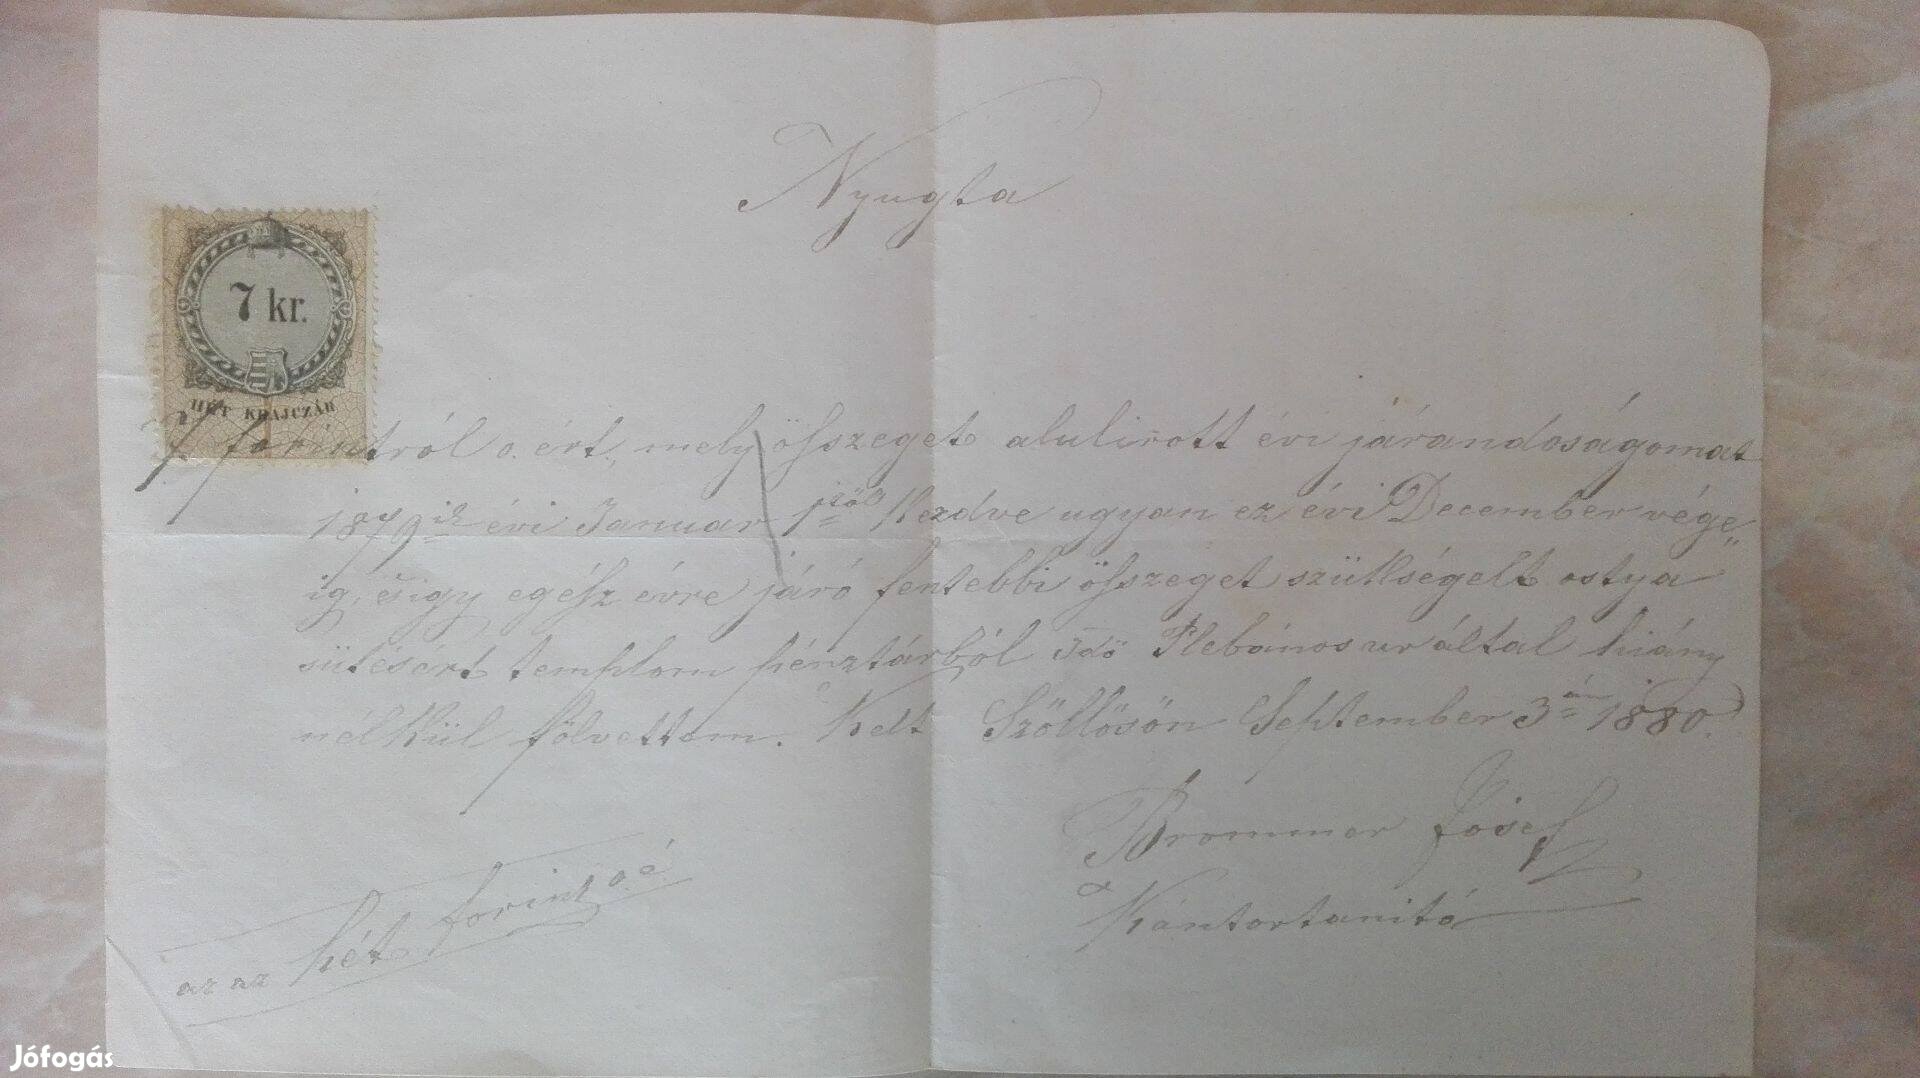 Nyugta
7 kr.
HÉT KRAJCZÁR
7 forintról o. ért., mely összeget alulirott évi járandoságomat
1879ik évi Januar 1ről kezdve ugyan ez évi December végé„
ig, és igy egész évre járó fentebbi összeget szükségelt ostya
sütésért templom pénztárból Plebános ur által hiány
nélkül fölvettem. Kelt Szöllösön September 3án 1880.
Brommer Josef
Kántortanitó
az az hét forint o. é.
Jófogás